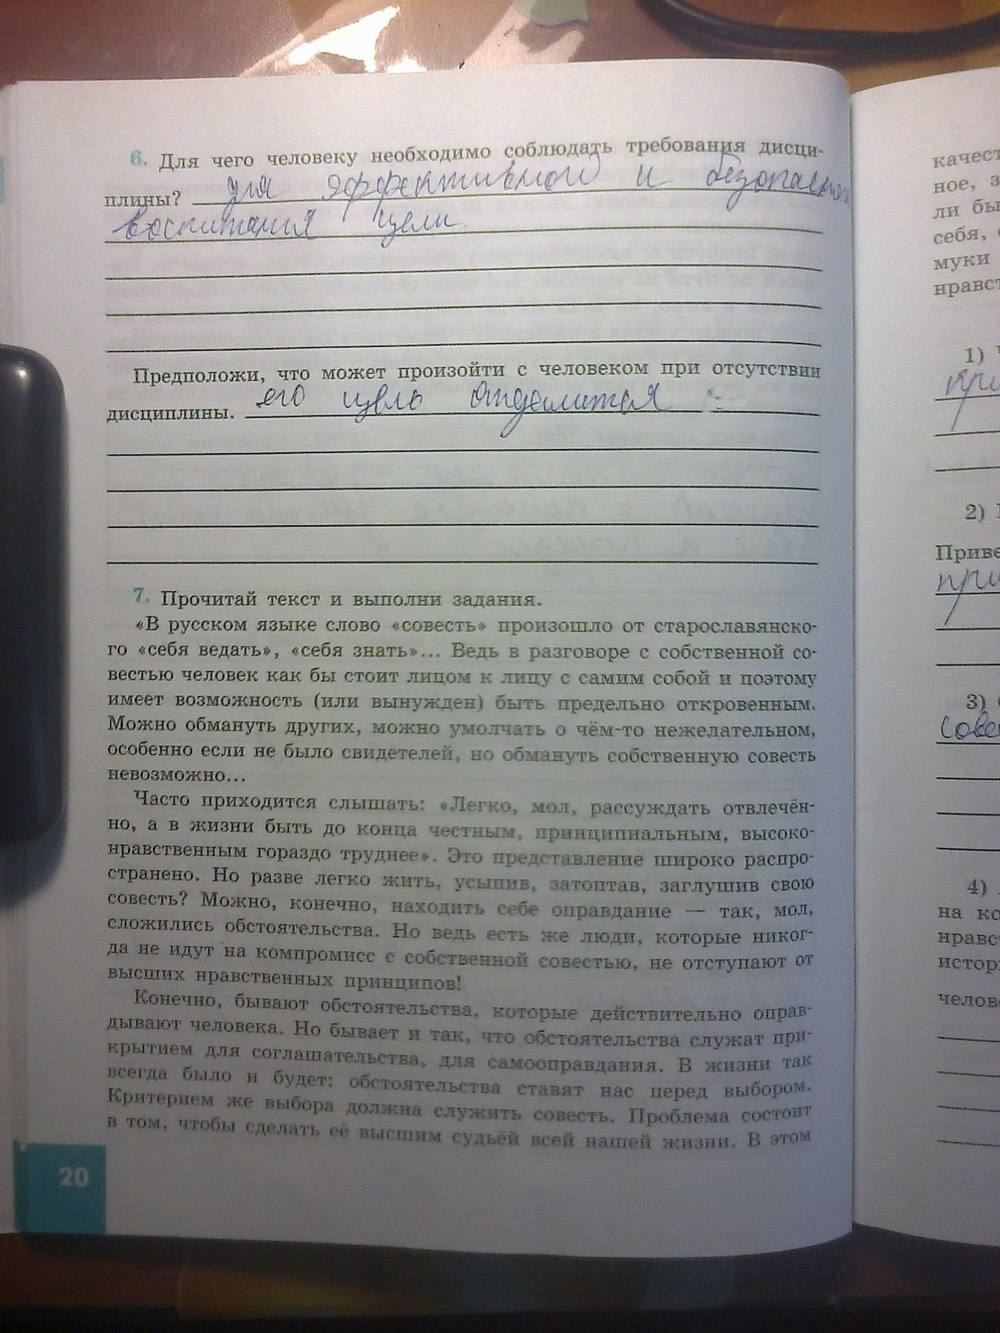 6. Для чего человеку необходимо соблюдать требования дисци-
плины? для эффективной и безопасной
воспитания цели
Предположи, что может произойти с человеком при отсутствии
дисциплины. его цель отдалится
7. Прочитай текст и выполни задания.
«В русском языке слово «совесть» произошло от старославянско-
го «себя ведать», «себя знать»... Ведь в разговоре с собственной со-
вестью человек как бы стоит лицом к лицу с самим собой и поэтому
имеет возможность (или вынужден) быть предельно откровенным.
Можно обмануть других, можно умолчать о чём-то нежелательном,
особенно если не было свидетелей, но обмануть собственную совесть
невозможно...
Часто приходится слышать: «Легко, мол, рассуждать отвлечён-
но, а в жизни быть до конца честным, принципиальным, высоко-
нравственным гораздо труднее». Это представление широко распро-
странено. Но разве легко жить, усыпив, затоптав, заглушив свою
совесть? Можно, конечно, находить себе оправдание — так, мол,
сложились обстоятельства. Но ведь есть же люди, которые никог-
да не идут на компромисс с собственной совестью, не отступают от
высших нравственных принципов!
Конечно, бывают обстоятельства, которые действительно оправ-
дывают человека. Но бывает и так, что обстоятельства служат при-
крытием для соглашательства, для самооправдания. В жизни так
всегда было и будет: обстоятельства ставят нас перед выбором.
Критерием же выбора должна служить совесть. Проблема состоит
в том, чтобы сделать её высшим судьёй всей нашей жизни. В этом
20
качест
ное, з
ли бы
себя,
муки
нравст
1)
при
2)
Приве
при
3)
сове
4)
на ко
нравст
истор
челове